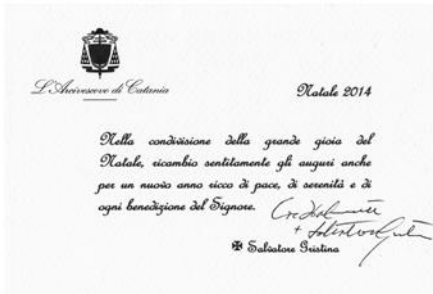 L'Arcivescovo di Catania
Natale 2014
Nella condivisione della grande gioia del
Natale, ricambio sentitamente gli auguri anche
per un nuovo anno ricco di pace, di serenità e di
ogni benedizione del Signore.
✠ Salvatore Gristina